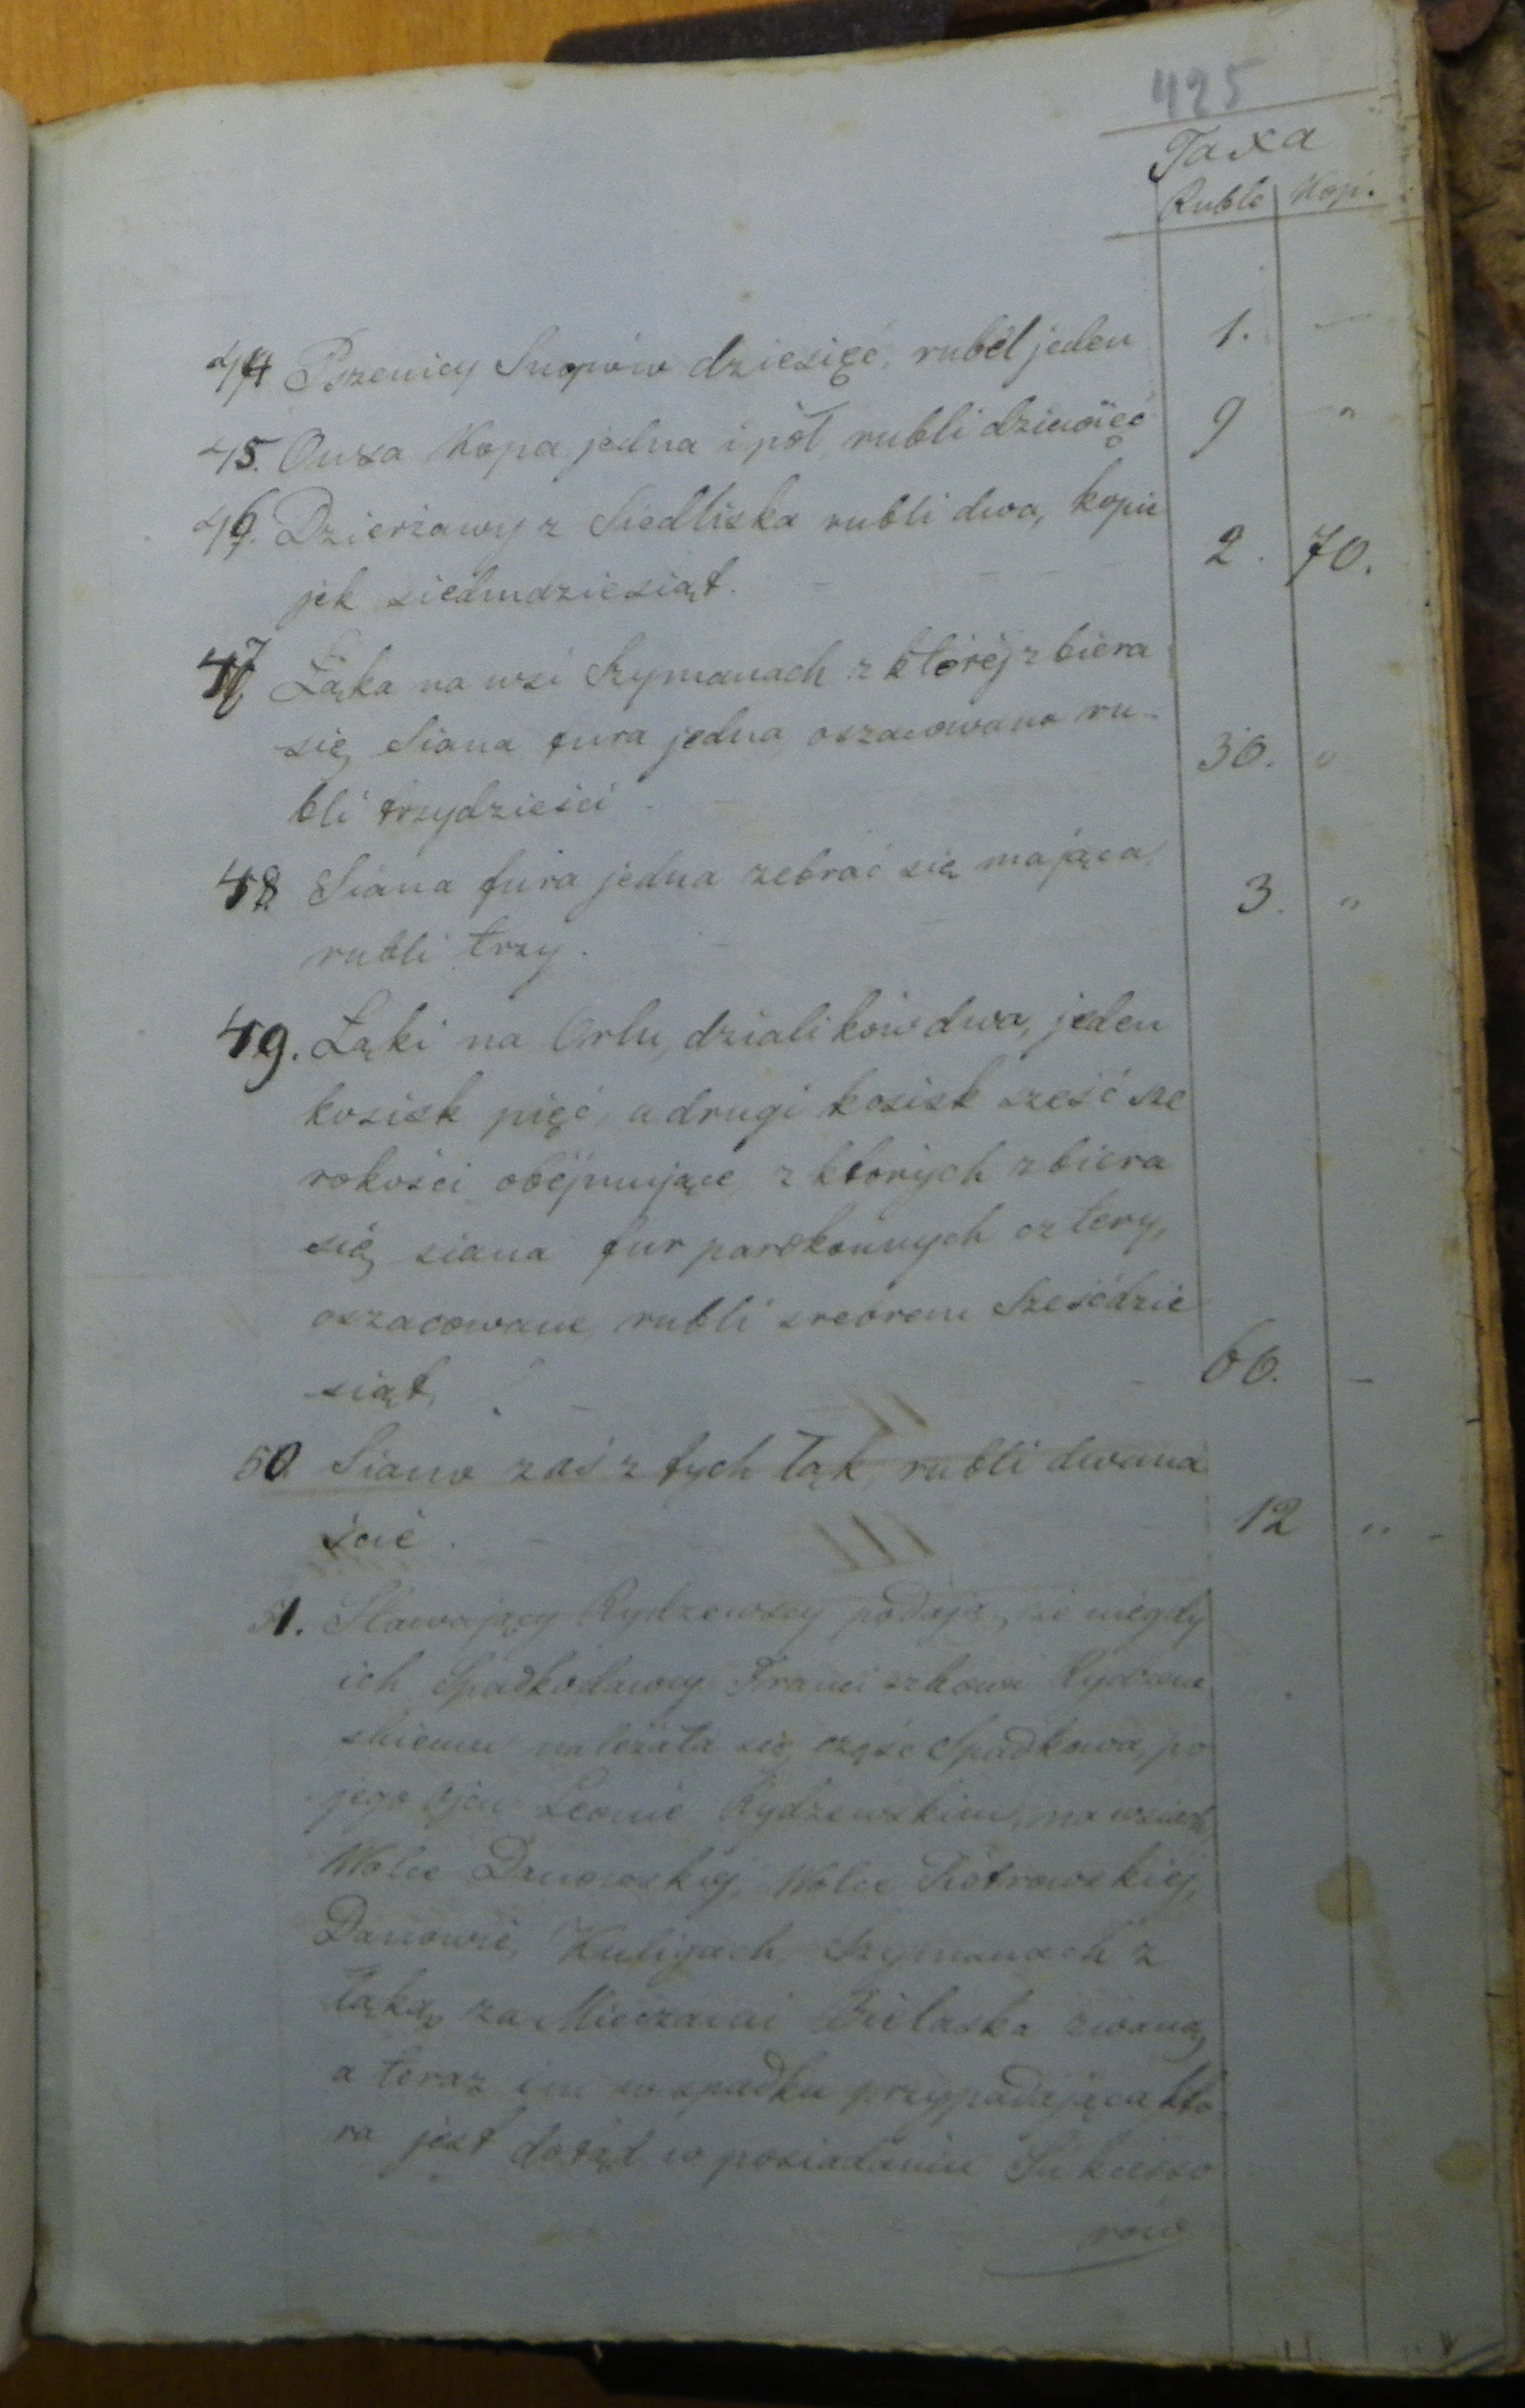 425
Taxa
Ruble Kop.
44 Pszenicy Snopów dziesięć, rubel jeden 1. —
45. Owsa Kopa jedna i pół, rubli dziewięć 9 "
46. Dzierżawy z Siedliska rubli dwa, kopie
jek siedmdziesiąt. 2. 70.
47 Łąka na wsi Szymanach z któréj zbiera
się Siana fura jedna, oszacowana ru-
bli trzydzieści 30. "
48 Siana fura jedna zebrać się mająca
rubli trzy. 3. "
49. Łąki na Orlu, dzialików dwa, jeden
kosisk pięć, a drugi kosisk sześć sze
rokości obejmujące, z których zbiera
się siana fur parokonnych cztery,
oszacowane, rubli srebrem Sześćdzie
siąt, 60. —
50 Siano zaś z tych łąk, rubli dwana
ście. 12 "
51. Stawający Rydzewscy podają, że niegdy
ich Spadkodawcy Franciszkowi Rydzew
skiemu należała się część Spadkowa, po
jego Ojcu Leonie Rydzewskim, na wsiach
Wolce Danowskiéj, Wolce Piotrowskiéj,
Danowie, Kuligach, Szymanach z
łąką za Mieczami Bielaska zwaną,
a teraz im w spadku przypadająca, któ
ra jest dotąd w posiadaniu Sukcesso
rów